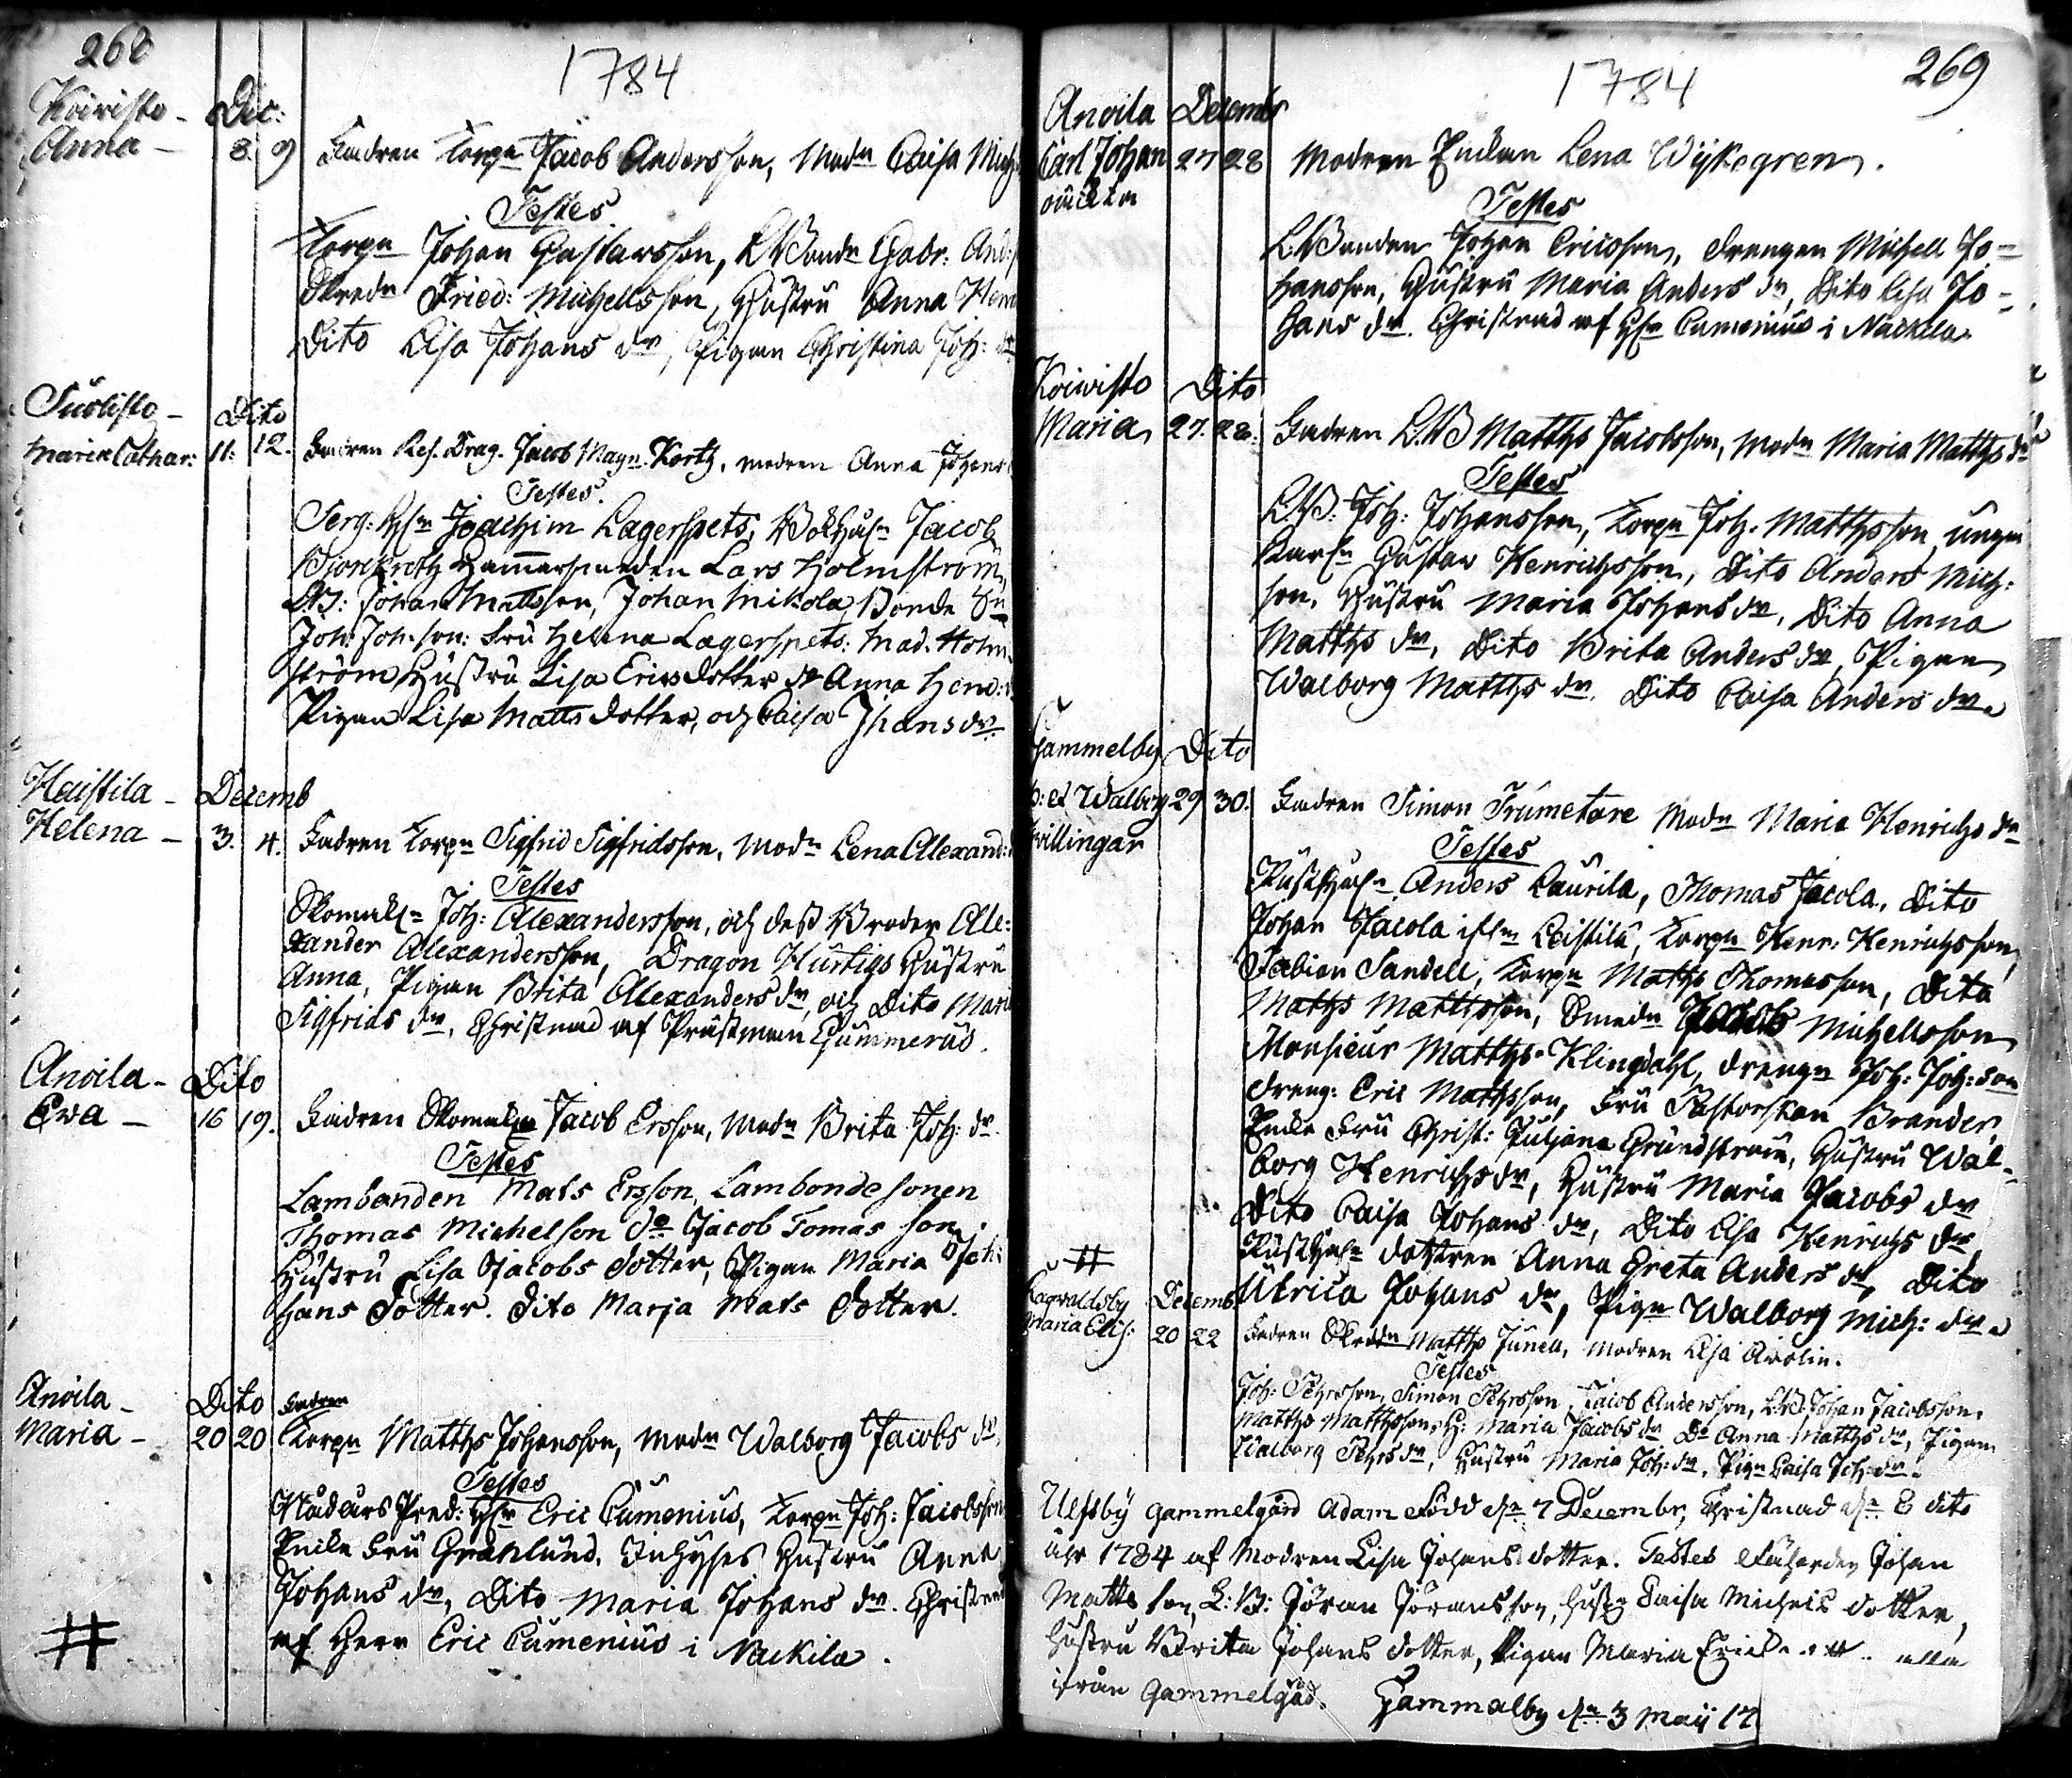 268
1784
Koivisto - Dec:
Anna - 8. 9 Fadren Torpn Jacob Andersson, Modn Caisa Mich
Testes
Torpn Johan Gustavsson, LBondn Gabr: And:
Skredn Fried: Michellsson, Hustru Anna Henr
Dito Lisa Johans dr, Pigan Christina Joh: dr
Suolisto - Dito
Maria Cathar: 11: 12. Fadren Res. Drag. Jacob Magn. Kortz, modren Anna Johans
Testes.
Serg: Hr Joachim Lagerspets, Jacob
Björkroth Hammarsmeden Lars Holmström,
LB: Johan Mattsson, Johan Mikola Bonde Sn
Joh: Joh:son: Fru Helena Lagerspets: Mad. Holm
ström, Hustru Lisa Ersdotter Do Anna Hend:
Pigan Lisa Matts dotter, och Caisa Jhans dr.
Haistila - Decemb
Helena - 3. 4. Fadren Torpn Sigfrid Sigfridsson, Modn Lena Alexand:
Testes
Skomakn Joh: Alexandersson, och dess Broder Ale:
xander Alexandersson, Dragon Hurtigs Hustru
Anna, Pigan Brita Alexanders dr, och Dito Mari
Sigfrids dr, Christnad af Prästman Gummerus.
Anoila - Dito
Eva - 16 19. Fadren Skomakn Jacob Ersson, Modn Brita Joh: dr.
Testes
Lambonden Mats Ersson, Lambondesonen
Thomas Michelson do Jacob Tomas son
Hustru Lisa Jacobs dotter, Pigan Maria Jo
hans dotter. Dito Marja Mats dotter.
Anoila - Dito Fadren
Maria - 20 20 Torpn Matths Johansson, Modn Walborg Jacobs dr,
Testes
Nådårs Pred: Hr Eric Cumenius, Torpn Joh: Jacobsson
Enke Fru Granlund, Inhyses Hustru Anna
Johans dr, Dito Maria Johans dr. Christnad
af Herr Eric Cumenius i Nackila.
#
1784
269
Anoila December
Carl Johan 27 28 Modren Enkan Lena Wykegren.
oäckta
Testes
L:Bonden Johan Ericsson, drengen Michell Jo=
hansson, Hustru Maria Anders dr, Dito Lisa Jo=
hans dr. Christnad af Hr Cumenius i Nackila
Koivisto Dito
Maria 27. 28. Fadren LB Matths Jacobsson, Modn Maria Matths dr
Testes
L.B: Joh: Johansson, Torpn Joh: Matthsson, unga
Karln Gustav Henrichsson, Dito Anders Mich:
son, Hustru Maria Johans dr, Dito Anna
Matths dr, Dito Brita Anders dr, Pigan
Walborg Matths dr. Dito Caisa Anders dr.
Gammelby Dito
et Walborg 29 30. Fadren Simon Trumetare Modn Maria Henrichs dr
Tvillingar
Testes
Rusthn Anders Laurila, Thomas Jacola, Dito
Johan Jacola Leistilä, Torpn Henr: Henrichsson,
Fabian Sandell, Torpn Maths Thomasson, Dito
Maths Matthsson, Smedn Jacob Michellsson
Monsieur Matths Klingdahl, drengn Joh: Joh:son
dreng: Eric Mathsson, Fru Pastorskan Brander,
Enke Fru Christ: Juliana Grundström, Hustru Wal=
borg Henrichs dr, Hustru Maria Jacobs dr
Dito Caisa Johans dr, Dito Lisa Henrichs dr,
Rusth: dottren Anna Greta Anders dr, Dito
Ulrica Johans dr, Pign Walborg Mich: dr.
#
Ragvaldsby Decemb
Maria Elis: 20 22 Fadren Skredn Matths Junell, Modren Lisa Avolin.
Testes
Joh: Pehrsson, Simon Pehrsson, Jacob Andersson, LB Johan Jacobsson,
Matths Matthsson, H: Maria Jacobs dr Do Anna Matths dr, Pigan
Walborg Pehrs dr, Hustru Maria Joh: dr, Pign Caisa Joh: dr.
Ulfsby Gammelgård Adam född dn 7 Decembr, Christnad dn 8 dito
åhr 1784 af Modren Lisa Johans dotter. Testes Johan
Matts son, L:B: Jöran Jöransson, Caisa Michels dotter,
Hustru Brita Johans dotter, Pigan Maria alla
ifrån Gammelgård. Gammalby dn 3 Maij 17